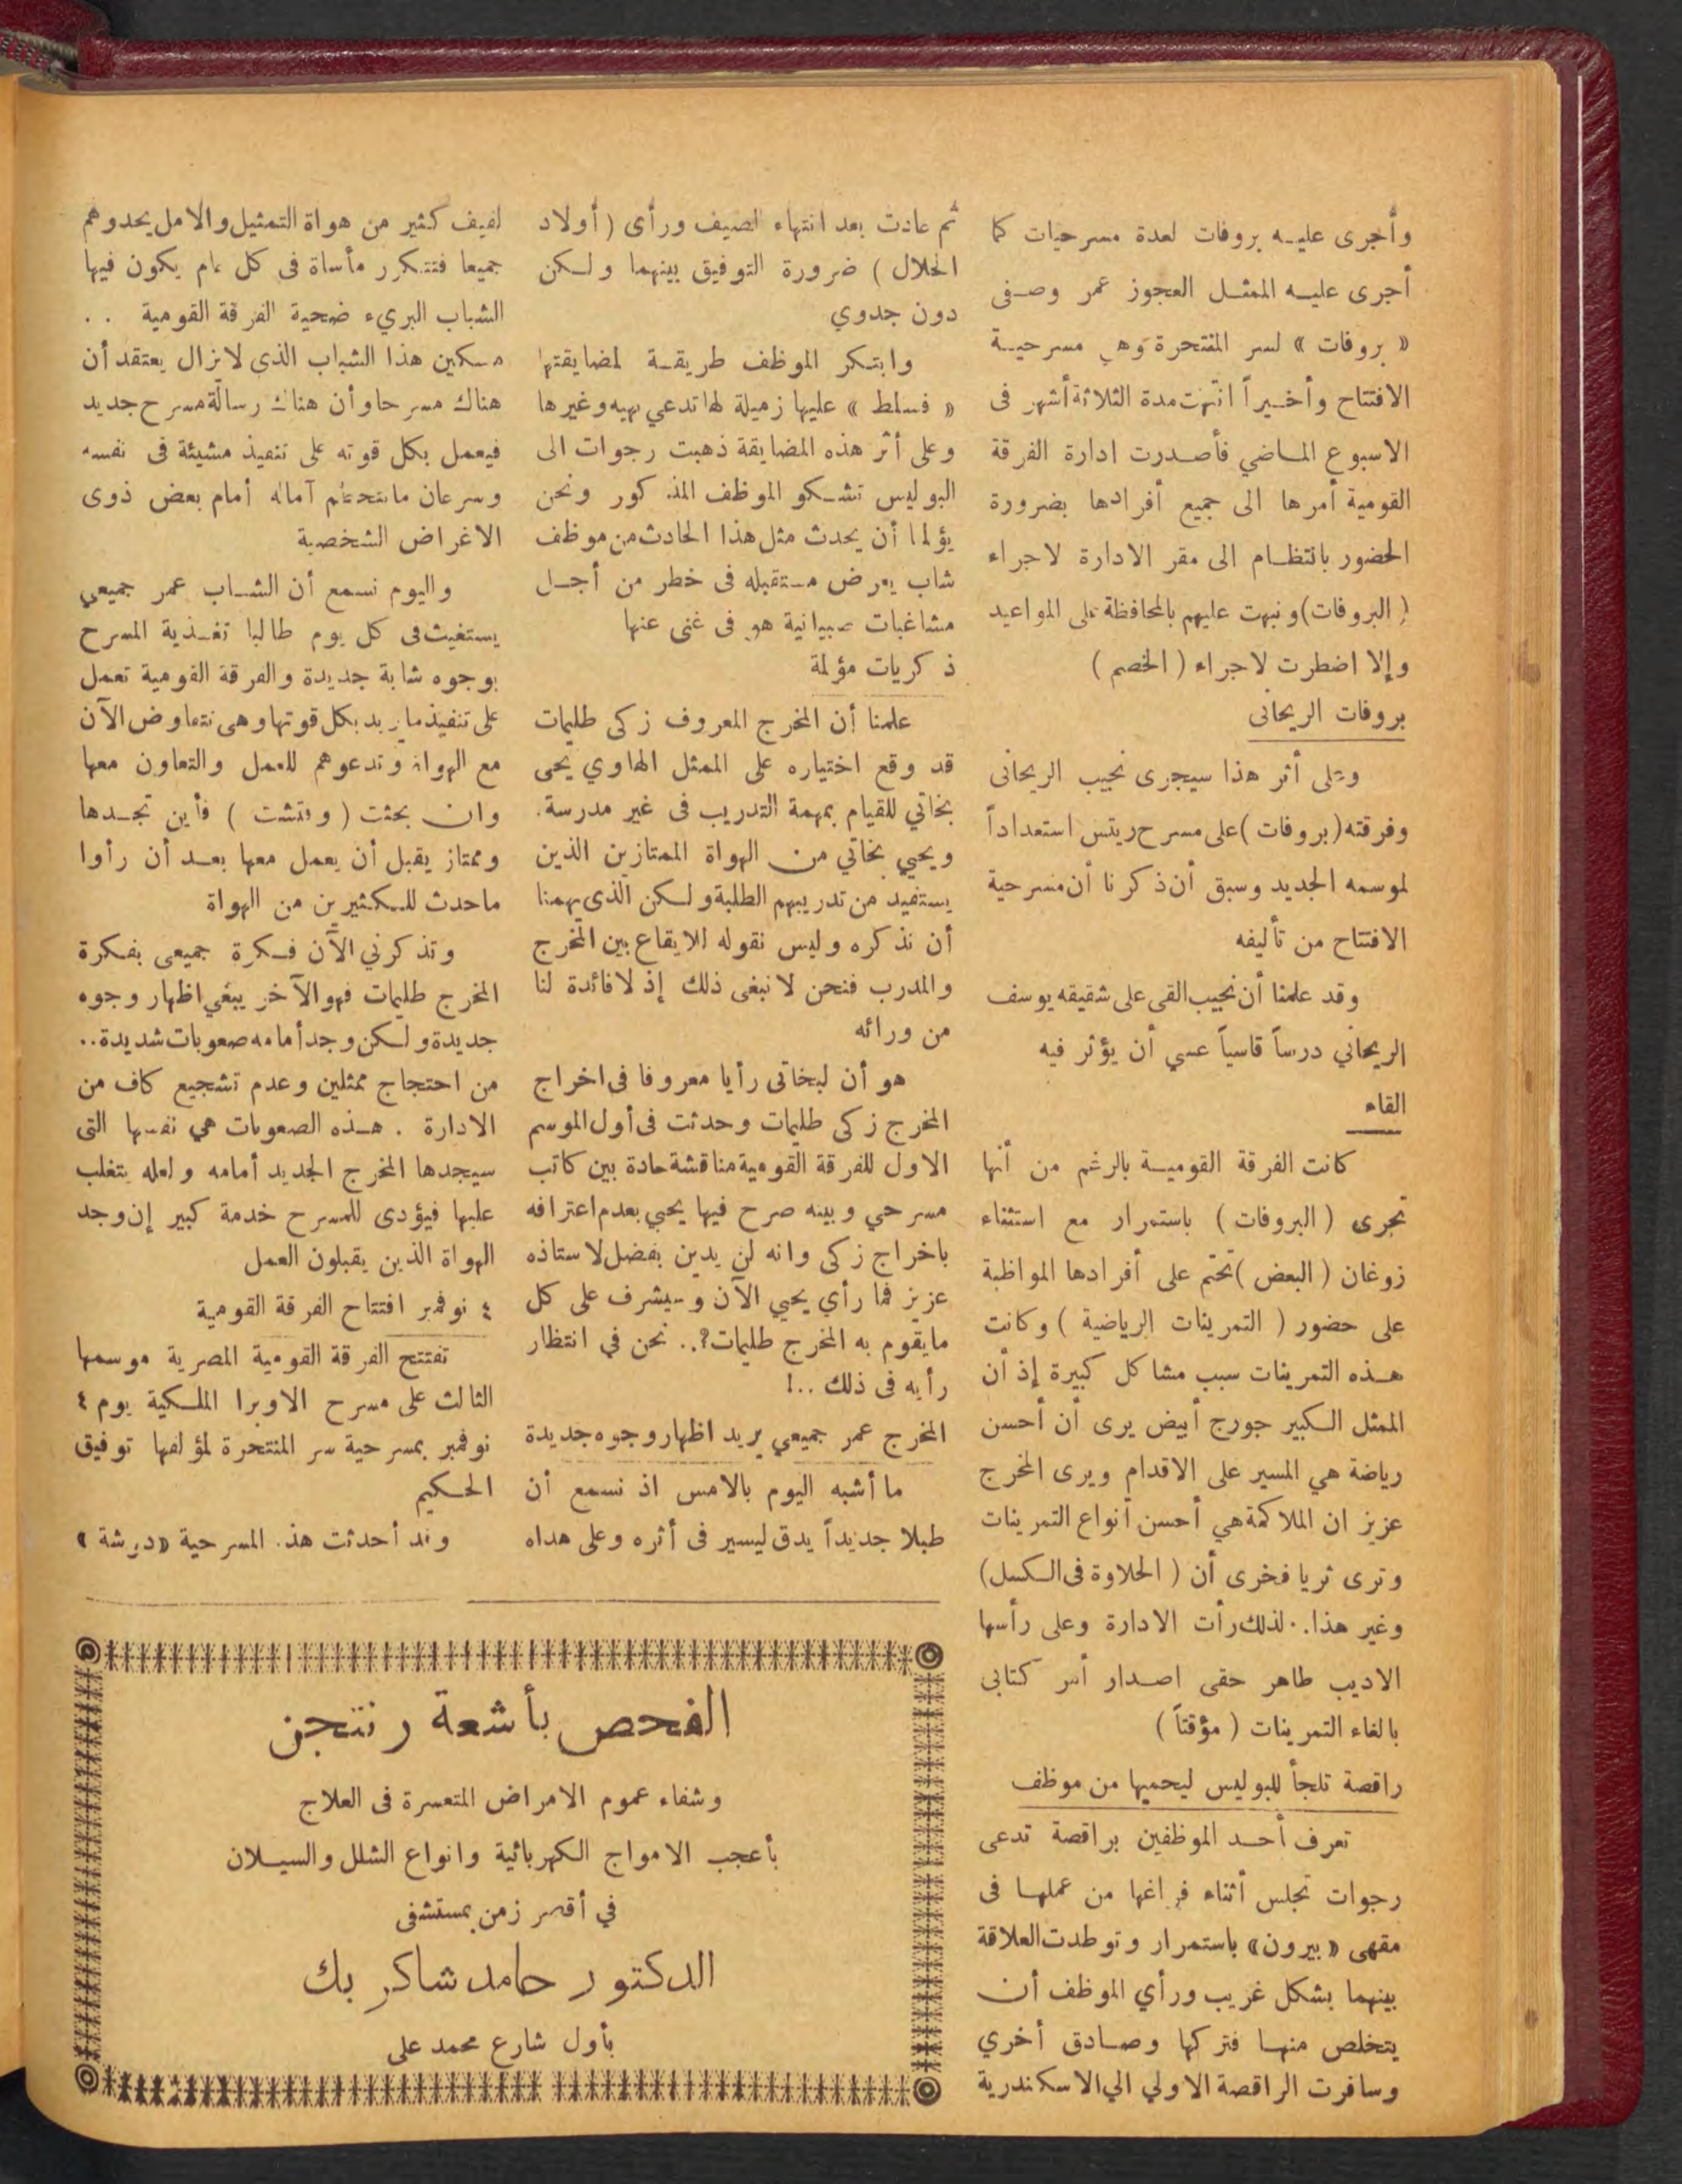 وأجرى عليه بروفات لعدة مسرحيات كما
أجرى عليه الممثل العجوز عمر وصفى
« بروفات » لسر المنتحرة وهى مسرحية
الافتتاح وأخيراً انتهت مدة الثلاثة أشهر فى
الاسبوع الماضي فأصدرت ادارة الفرقة
القومية أمرها الى جميع أفرادها بضرورة
الحضور بانتظام الى مقر الادارة لاجراء
( البروفات ) ونبهت عليهم بالمحافظة على المواعيد
وإلا اضطرت لاجراء ( الخصم )
بروفات الريحانى
وعلى أثر هذا سيجرى نجيب الريحانى
وفرقته ( بروفات ) على مسرح ريتس استعداداً
لموسمه الجديد وسبق أن ذكرنا أن مسرحية
الافتتاح من تأليفه
وقد علمنا أن نجيب القى على شقيقه يوسف
الريحاني درساً قاسياً عسي أن يؤثر فيه
الغاء
كانت الفرقة القومية بالرغم من أنها
تجرى ( البروفات ) باستمرار مع استثناء
زوغان ( البعض ) تحتم على أفرادها المواظبة
على حضور ( التمرينات الرياضية ) وكانت
هذه التمرينات سبب مشاكل كبيرة إذ أن
الممثل الكبير جورج أبيض يرى أن أحسن
رياضة هي المسير على الاقدام ويرى المخرج
عزيز ان الملاكمة هي أحسن أنواع التمرينات
وترى ثريا فخرى أن ( الحلاوة فى الكسل )
وغير هذا.. لذلك رأت الادارة وعلى رأسها
الاديب طاهر حقى اصدار أمر كتابى
بالغاء التمرينات ( مؤقتاً )
راقصة تلجأ للبوليس ليحميها من موظف
تعرف أحد الموظفين براقصة تدعى
رجوات تجلس أثناء فراغها من عملها فى
مقهى « بيرون » باستمرار وتوطدت العلاقة
بينهما بشكل غريب ورأي الموظف أن
يتخلص منها فتركها وصادق أخري
وسافرت الراقصة الاولي الي الاسكندرية
ثم عادت بعد انتهاء الصيف ورأى ( أولاد
الحلال ) ضرورة التوفيق بينهما ولكن
دون جدوي
وابتكر الموظف طريقة لمضايقتها
« فسلط » عليها زميلة لها تدعي بهيه وغيرها
وعلى أثر هذه المضايقة ذهبت رجوات الى
البوليس تشكو الموظف المذكور ونحن
يؤلمنا أن يحدث مثل هذا الحادث من موظف
شاب يعرض مستقبله فى خطر من أجل
مشاغبات صبيانية هو فى غنى عنها
ذكريات مؤلمة
علمنا أن المخرج المعروف زكى طليمات
قد وقع اختياره على الممثل الهاوي يحى
بخاتي للقيام بمهمة التدريب فى غير مدرسة.
ويحيي بخاتي من الهواة الممتازين الذين
يستفيد من تدريبهم الطلبة ولكن الذى يهمنا
أن نذكره وليس نقوله للايقاع بين المخرج
والمدرب فنحن لا نبغى ذلك إذ لا فائدة لنا
من ورائه
هو أن لبخاتى رأيا معروفا فى اخراج
المخرج زكى طليمات وحدثت فى أول الموسم
الاول للفرقة القومية مناقشة حادة بين كاتب
مسرحي وبينه صرح فيها يحيي بعدم اعترافه
باخراج زكى وانه لن يدين بفضل لاستاذه
عزيز فما رأي يحيي الآن وسيشرف على كل
مايقوم به المخرج طليمات؟.. نحن في انتظار
رأيه فى ذلك ..!
المخرج عمر جميعي يريد اظهار وجوه جديدة
ما أشبه اليوم بالامس اذ نسمع أن
طبلا جديداً يدق ليسير فى أثره وعلى هداه
لفيف كثير من هواة التمثيل والامل يحدوهم
جميعا فتتكرر مأساة فى كل عام يكون فيها
الشباب البريء ضحية الفرقة القومية . .
مسكين هذا الشباب الذي لايزال يعتقد أن
هناك مسرحا وأن هناك رسالة مسرح جديد
فيعمل بكل قوته على تنفيذ مشيئة فى نفسه
وسرعان ماتتحطم آماله أمام بعض ذوى
الاغراض الشخصية
واليوم نسمع أن الشاب عمر جميعي
يستغيث فى كل يوم طالبا تغذية المسرح
بوجوه شابة جديدة والفرقة القومية تعمل
على تنفيذ ما يريد بكل قوتها وهى تتفاوض الآن
مع الهواة وتدعوهم للعمل والتعاون معها
وان بحثت ( وفتشت ) فأين تجدها
وممتاز يقبل أن يعمل معها بعد أن رأوا
ماحدث للكثيرين من الهواة
وتذكرني الآن فكرة جميعى بفكرة
المخرج طليمات فهو الآخر يبغي اظهار وجوه
جديدة ولكن وجد أمامه صعوبات شديدة..
من احتجاج ممثلين وعدم تشجيع كاف من
الادارة . هذه الصعوبات هي نفسها التى
سيجدها المخرج الجديد أمامه ولعله يتغلب
عليها فيؤدى للمسرح خدمة كبير إن وجد
الهواة الذين يقبلون العمل
٤ نوفمبر افتتاح الفرقة القومية
تفتتح الفرقة القومية المصرية موسمها
الثالث على مسرح الاوبرا الملكية يوم ٤
نوفمبر بمسرحية سر المنتحرة لمؤلفها توفيق
الحكيم
وقد أحدثت هذه المسرحية « دوشة »
الفحص بأشعة رنتجن
وشفاء عموم الامراض المتعسرة فى العلاج
بأعجب الامواج الكهربائية وانواع الشلل والسيلان
في أقصر زمن بمستشفى
الدكتور حامد شاكر بك
بأول شارع محمد على